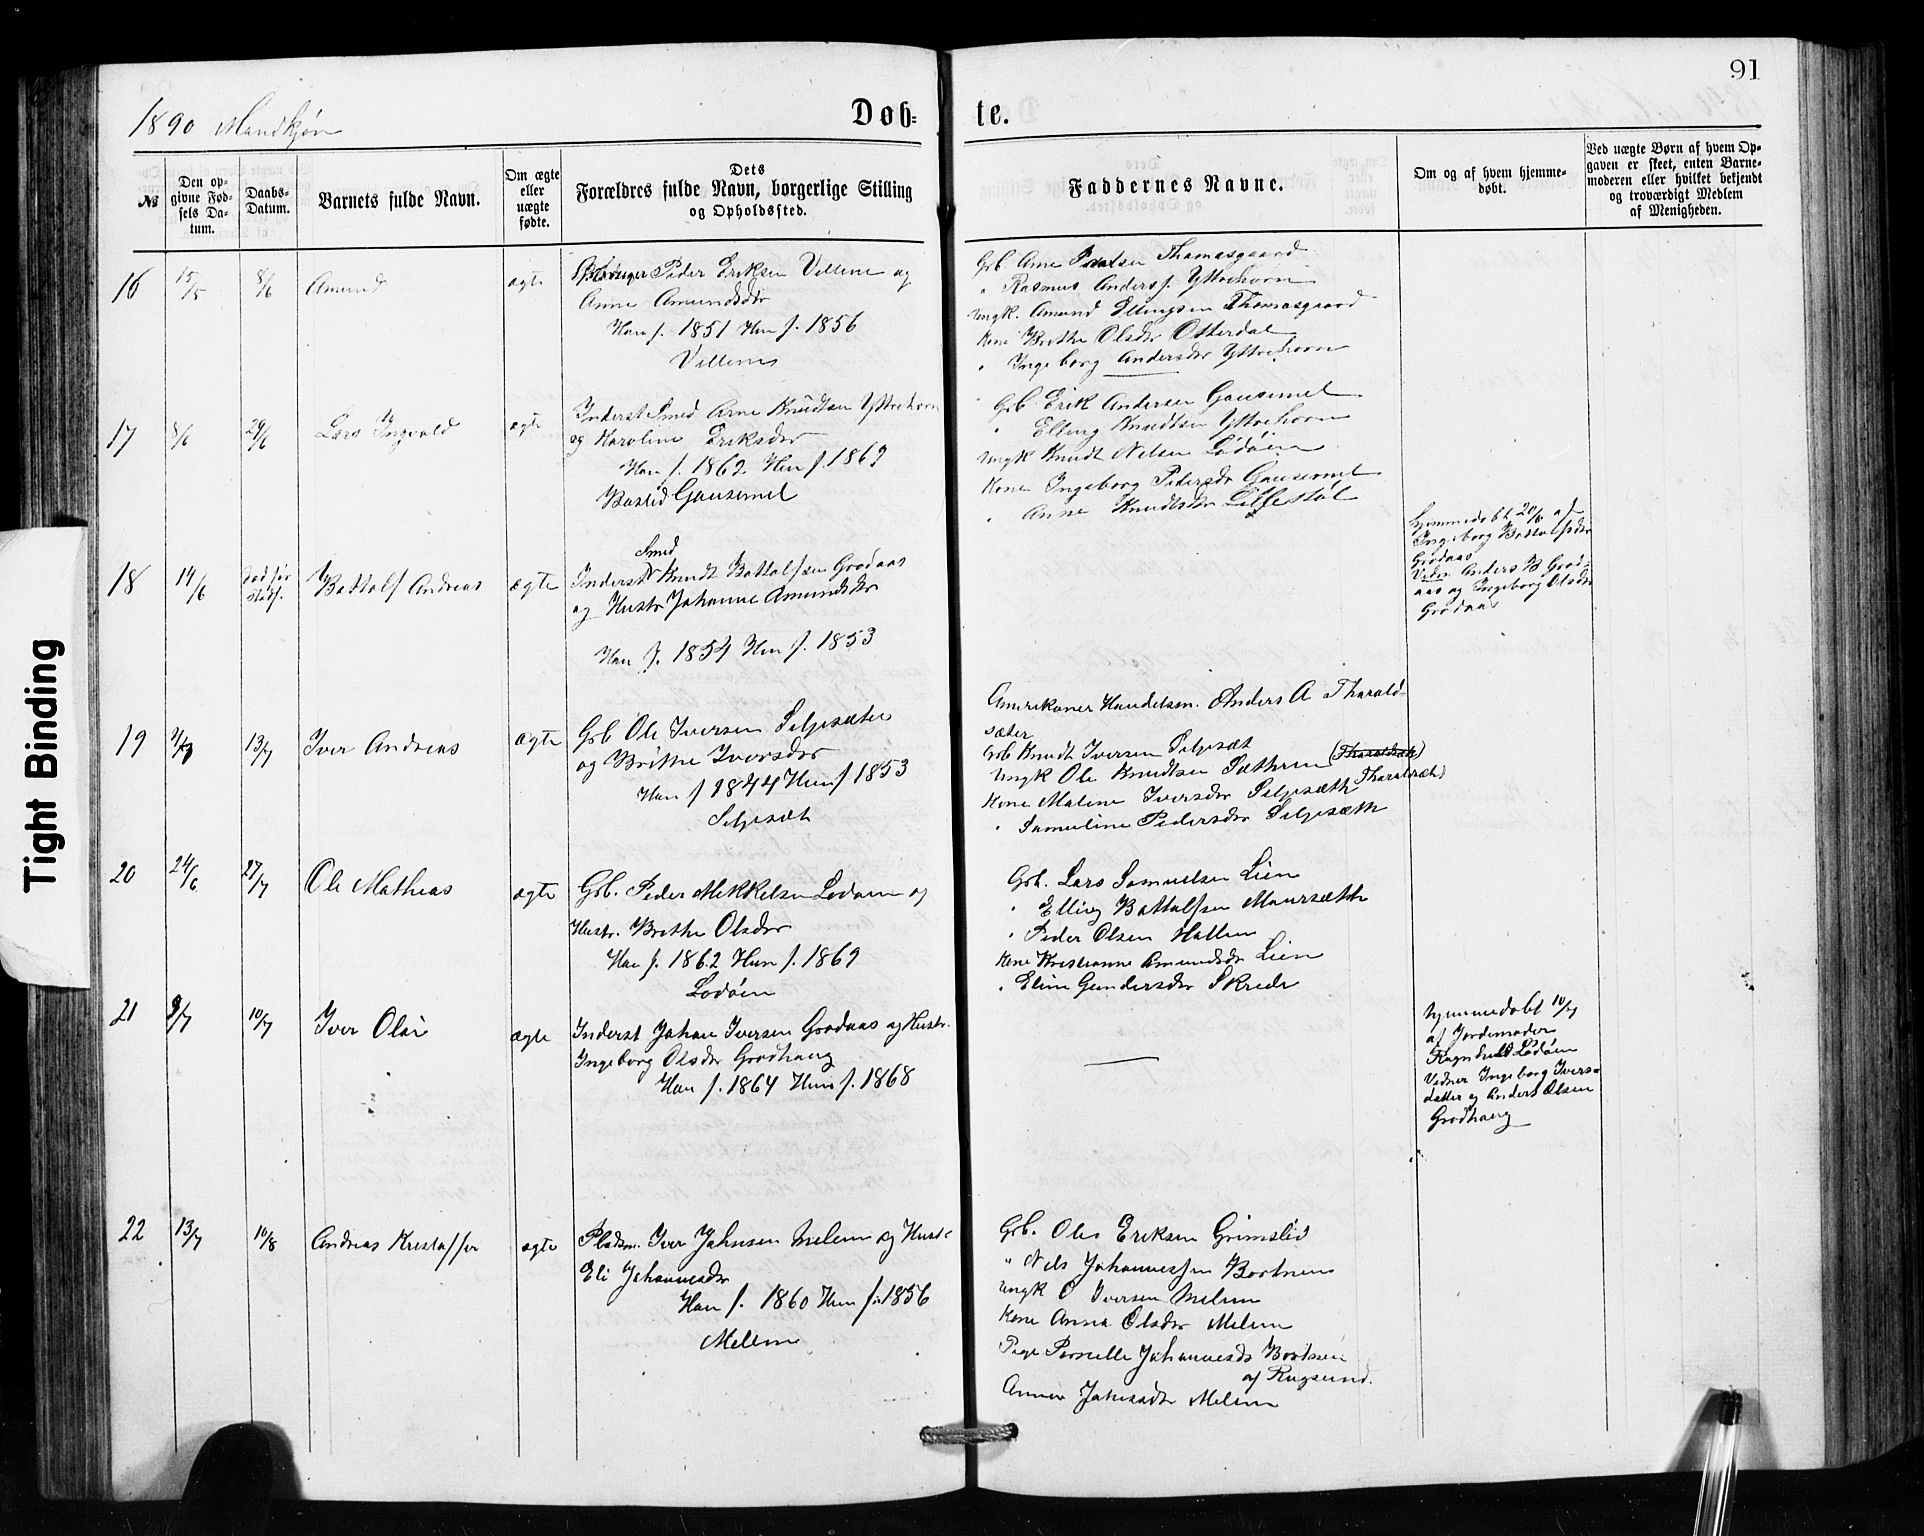 91
1890 Mandkjøn
Døb-
te.
№
Den op-
givne Fød-
sels Da-
tum.
Daabs-
Datum.
Barnets fulde Navn.
Om ægte
eller
uægte
fødte.
Dets
Forældres fulde Navn, borgerlige Stilling
og Opholdssted.
Faddernes Navne.
Om og af hvem hjemme-
døbt.
Ved uægte Børn af hvem Op-
gaven er skeet, enten Barne-
moderen eller hvilket bekjendt
og troværdigt Medlem
af Menigheden.
16
15/5
8/6
Amund
ægte
Peder Eriksen Vellene og
Anne Amundsdtr
Han f. 1851 Hun f. 1856
Vellenes
Grb Arne Thomasgaard
" Rasmus Anders. Yttrehorn
Ungk. Amund Ellingsen Thomasgaard
Kone Brithe Olsdtr Otterdal
" Ingeborg Andersdtr Yttrehorn
17
8/6
29/6
Lars Ingvald
ægte
Inderst Smed Arne Knudtsen Yttrehorn
og Karoline Eriksdtr
Han f. 1862. Hun f. 1869
Bosted Gausemel
Grb Erik Andersen Gausemel
" Elling Knudtsen Yttrehorn
Ungk Knudt Nelsen Lødøen
Kone Ingeborg Pedersdtr Gausemel
" Anne Knudtsdtr Lillestøl
18
14/6
død før
stadf.
Battolf Andreas
ægte
Smed
Inderst Knudt Battolfsen Grodaas
og Hustr Johanne Amundsdtr
Han f. 1854 Hun f. 1853
Hjemmedøbt 20/6 af
Ingeborg Battolfsdtr
Grodaas
Vidn. Anders B Grod-
aas og Ingeborg Olsdtr
Grodaas
19
13/7
Iver Andreas
ægte
Grb Ole Iversen Seljesæter
og Brithe Iversdtr
Han f 1844 Hun f 1853
Seljesæt
Amerikaner Handelsm. Anders A Tharald-
sæter
Grb Knudt Iversen Seljesæt
Ungk Ole Knudtsen Sæthren (Tharaldsæt)
Tharaldsæt)
Kone Malene Iversdtr Seljesæth
" Samueline Pedersdtr Seljesæth
20
24/6
27/7
Ole Mathias
ægte
Grb. Peder Mekkelsen Lodøen og
Hustr. Brithe Olsdtr
Han f. 1862 Hun f. 1869
Lodøen
Grb. Lars Samuelsen Lien
" Elling Battolfsen Maursæth
" Peder Olsen Hallen
Kone Kristianne Amundsdtr Lien
" Eline Gundersdtr Skrede
21
9/7
10/7
Iver Olai
ægte
Inderst Johan Iversen Grodaas og Hustr.
Ingeborg Olsdtr Grodhaug
Han f. 1864 Hun f. 1868
Hjemmedøbt 10/7
af Jordemoder
Ragnhild Lødøen
Vidner Ingeborg Ivers-
datter og Anders Olsen
Grodhaug
22
13/7
10/8
Andreas Kristoffer
ægte
Pladsm. Iver Johnsen Melem og Hustr
Eli Johannesdtr
Han f. 1860 Hun f. 1856
Mellem
Grb. Ole Eriksen Grimslid
" Nels Johannessen Bortnen
Ungk O Iversen Melem
Kone Anna Olsdtr Melem
Pige Pernelle Johannesdtr Bortnen
af Rugsund.
Johnsdtr Melem
Tight Binding